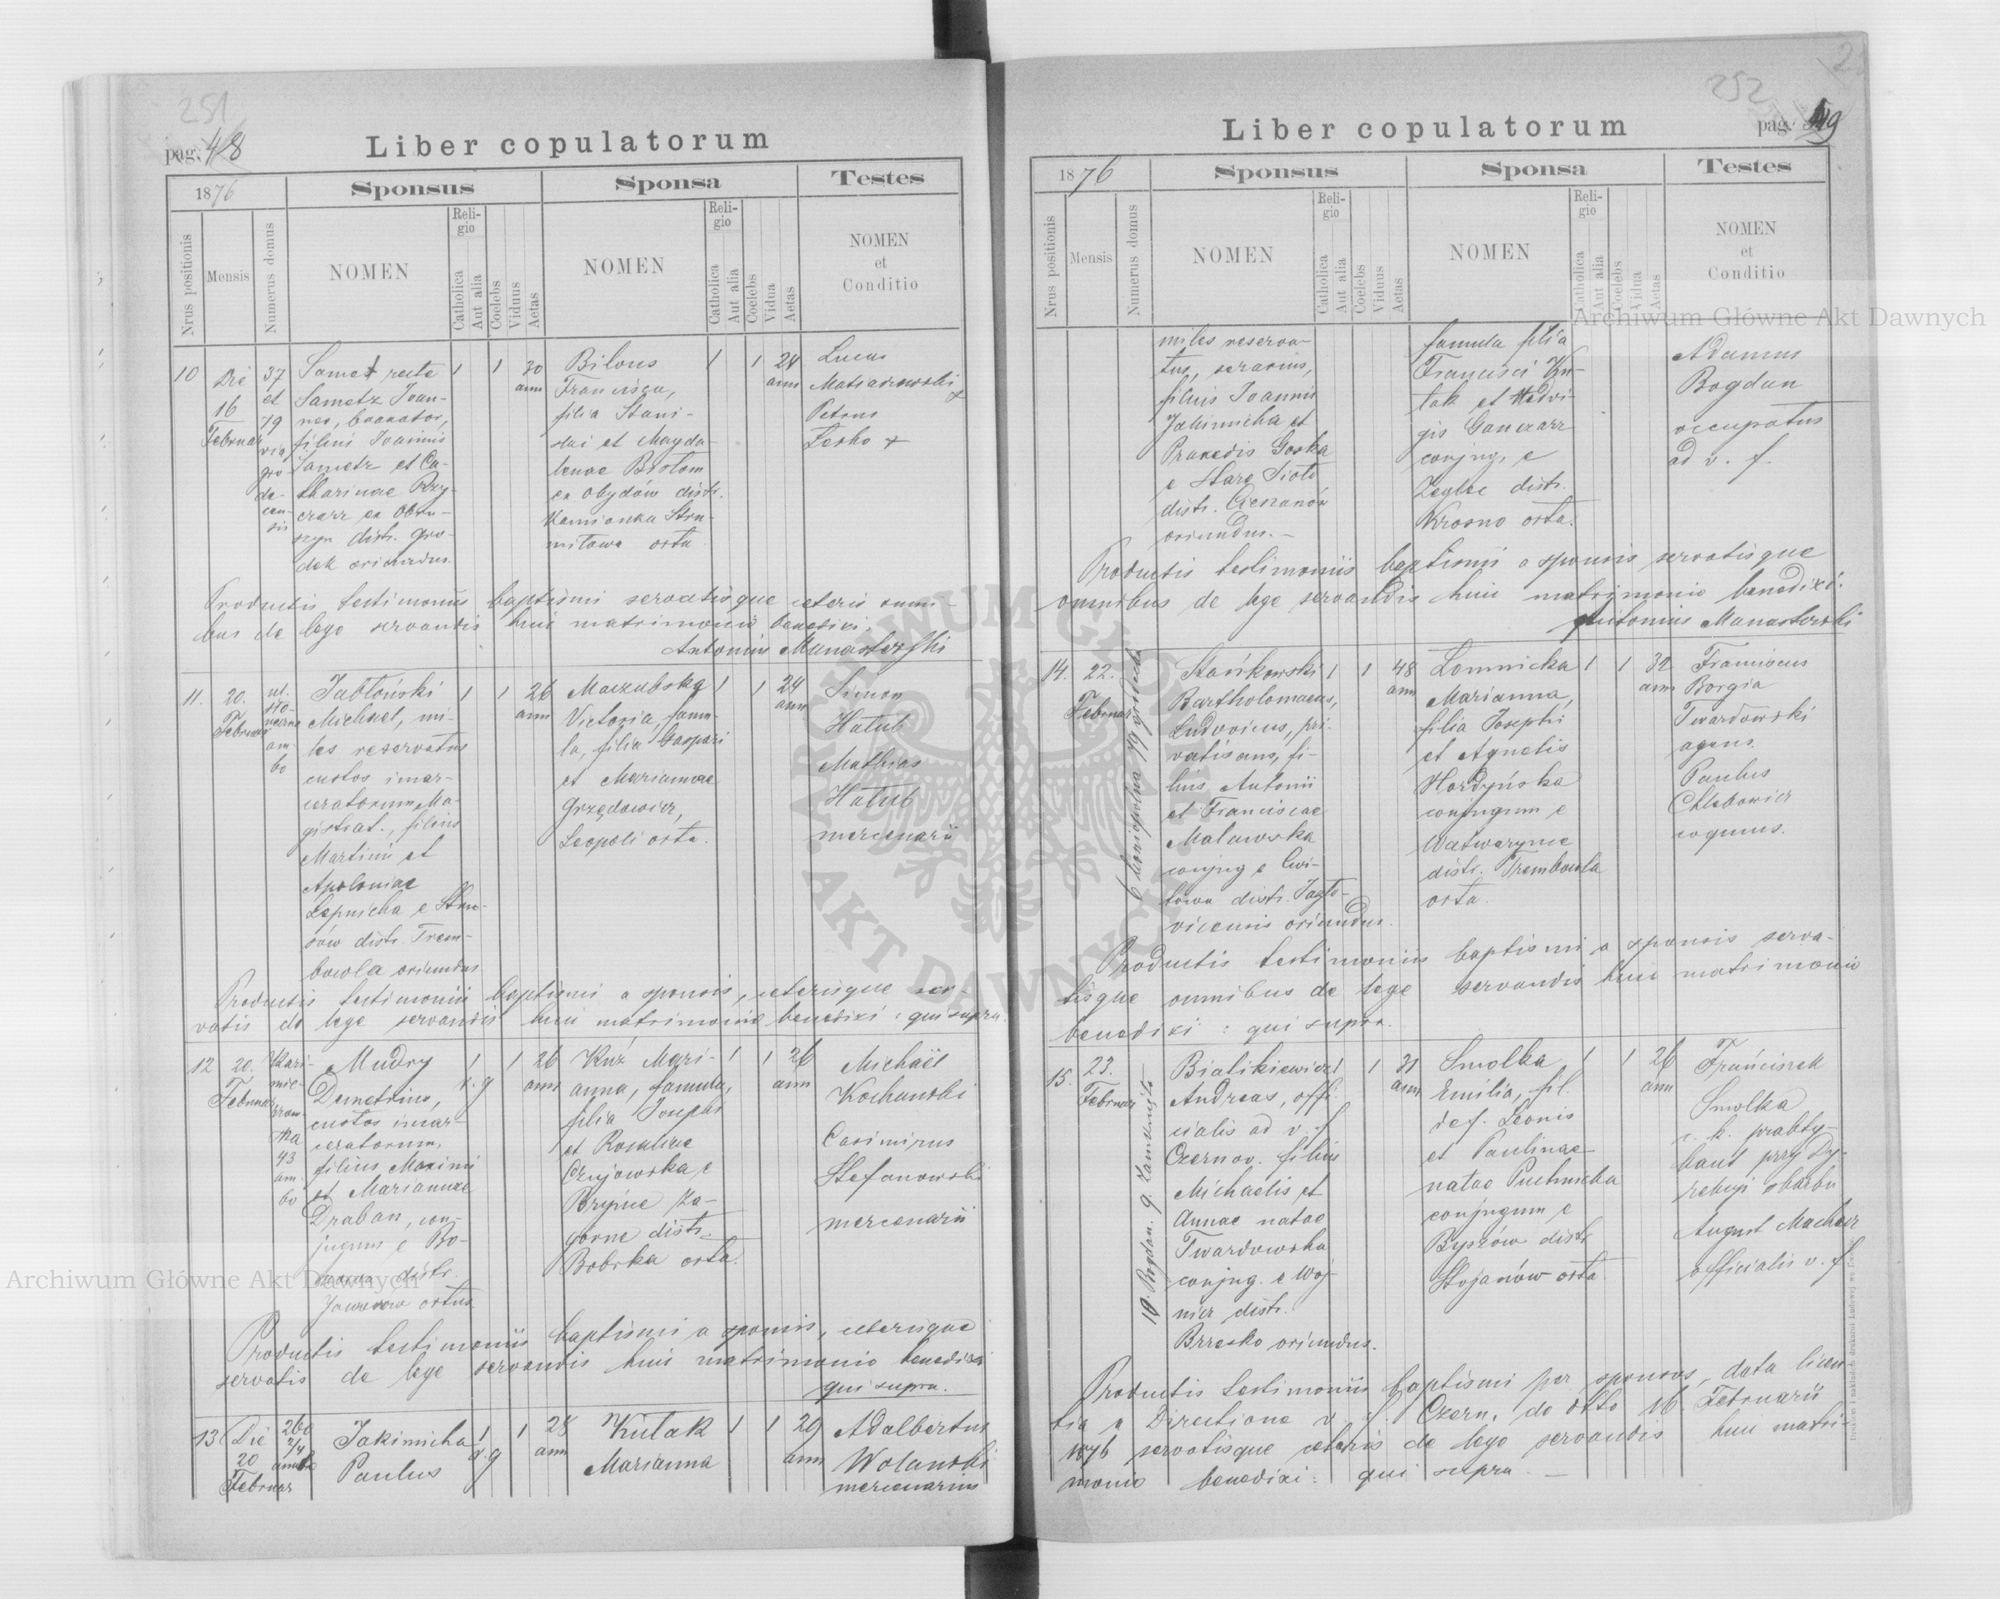 251
pag. 48
Liber copulatorum
1876
Sponsus
Sponsa
Testes
Nrus positionis
Mensis
Numerus domus
NOMEN
Religio
Catholica
Aut alia
Coelebs
Viduus
Aetas
NOMEN
Religio
Catholica
Aut alia
Coelebs
Vidua
Aetas
NOMEN
et
Conditio
10
Die
16
Februar
37
et
79
Samet recte
Sametz Joan-
nes,
filius Joannis
Sametz et Ca-
tharinae
dek oriundus.
1
1
30
ann
Bilous
Francisca,
filia Stani-
slai et Magda-
lenae
ex Obydów distr.
Kamionka Stru-
mitowa orta
1
1
24
ann
Lucas
+
Petrus
Lesko +
Productis testimoniis baptismi servatisque ceteris omni-
bus de lege servandis huic matrimonio benedixi.
Antonius Manasterski
11.
20.
Februar
am-
bo
Jabłoński
Michael, mi-
les reservatus
custos incar-
ceratorum Ma-
gistrat., filius
Martini et
Apoloniae
Lepnicha e Stru-
sów distr. Trem-
bowla oriundus
1
1
26
ann
Victoria, famu-
la, filia Caspari
et Mariannae
Grzędowicz,
Leopoli orta.
1
1
24
ann
Simon
Hatub
Mathias
Hatub
mercenarii
Productis testimoniis baptismi a sponsis, ceterisque ser-
vatis de lege servandis huic matrimonio benedixi: qui supra.
12
20.
Februar
43
am-
bo
Mudry
Demetrius,
custos incar-
ceratorum,
filius Maximi
et Mariannae
Draban, con-
jugum e Bo-
distr.
ortus
1
r. g
1
26
ann
Kuź Mari-
anna, famula,
filia Josephi
et Rosaliae
Czyjowska e
Bryńce Za-
gorne distr.
Bobrka orta.
1
1
26
ann
Michaël
Kochanski
Casimirus
Stefanowski
mercenarii
Productis testimoniis baptismi a sponsis, ceterisque
servatis de lege servandis huic matrimonio benedixi
qui supra.
13
Die
20
Februar
260
2/4
ambo
Jakimicha
Paulus
1
r. g
1
28
ann
Kutak
Marianna
1
1
29
ann
Adalbertus
Wolanski
mercenarius
252
pag. 49
Liber copulatorum
1876
Sponsus
Sponsa
Testes
Nrus positionis
Mensis
Numerus domus
NOMEN
Religio
Catholica
Aut alia
Coelebs
Viduus
Aetas
NOMEN
Religio
Catholica
Aut alia
Coelebs
Vidua
Aetas
NOMEN
et
Conditio
miles reserva-
tus,
filius Joannis
Jakimicha et
Praxedis Goska
e Stare Sioło
distr. Cieszanów
oriundus. –
famula filia
Francisci Ku-
tak et Hedvi-
gis Gancarz
conjug. e
Zeglce distr.
Krosno orta.
Adamus
Bogdan
occupatus
ad v. f.
Productis testimoniis baptismi a sponsis servatisque
omnibus de lege servandis huic matrimonio benedixi:
Antonius Manasterski
14.
22.
Februar
Stańkowski
Bartholomaeus,
Ludovicus, pri-
vatisans, fi-
lius Antonii
et Franciscae
Malawska
conjug e Cwi-
towa distr.
oriundus.
1
1
48
ann
Lomnicka
Marianna,
filia Josephi
et Agnetis
Hordyńska
conjugum e
distr. Trembowla
orta.
1
1
32
ann
Franciscus
Borgia
Twardowski
agens.
Paulus
Chlebowicz
coquus.
Productis testimoniis baptismi a sponsis serva-
tisque omnibus de lege servandis huic matrimonio
benedixi: qui supra.
15.
23.
Februar
Bialikiewicz
Andreas, offi-
cialis ad v. f
Czernov. filius
Michaelis et
Annae natae
Twardowska
conjug. e Woj-
nicz distr.
Brzesko oriundus.
1
1
31
ann
Smolka
Emilia, fil.
def. Leonis
et Paulinae
natae Puchnicka
conjugum e
Byszów distr.
Stojanów orta
1
1
26
ann
Franciszek
Smolka
c. k. prakty-
kant przy Dy-
rekcyi skarbu
August Machar
officialis v. f
Productis testimoniis baptismi per sponsos, data licen-
tia a Directione v. f. Czern. de dtto 16 Februarii
1876 servatisque ceteris de lege servandis huic matri-
monio benedixi: qui supra. –
Archiwum Główne Akt Dawnych
Archiwum Główne Akt Dawnych
ARCHIWUM GŁÓWNE AKT DAWNYCH